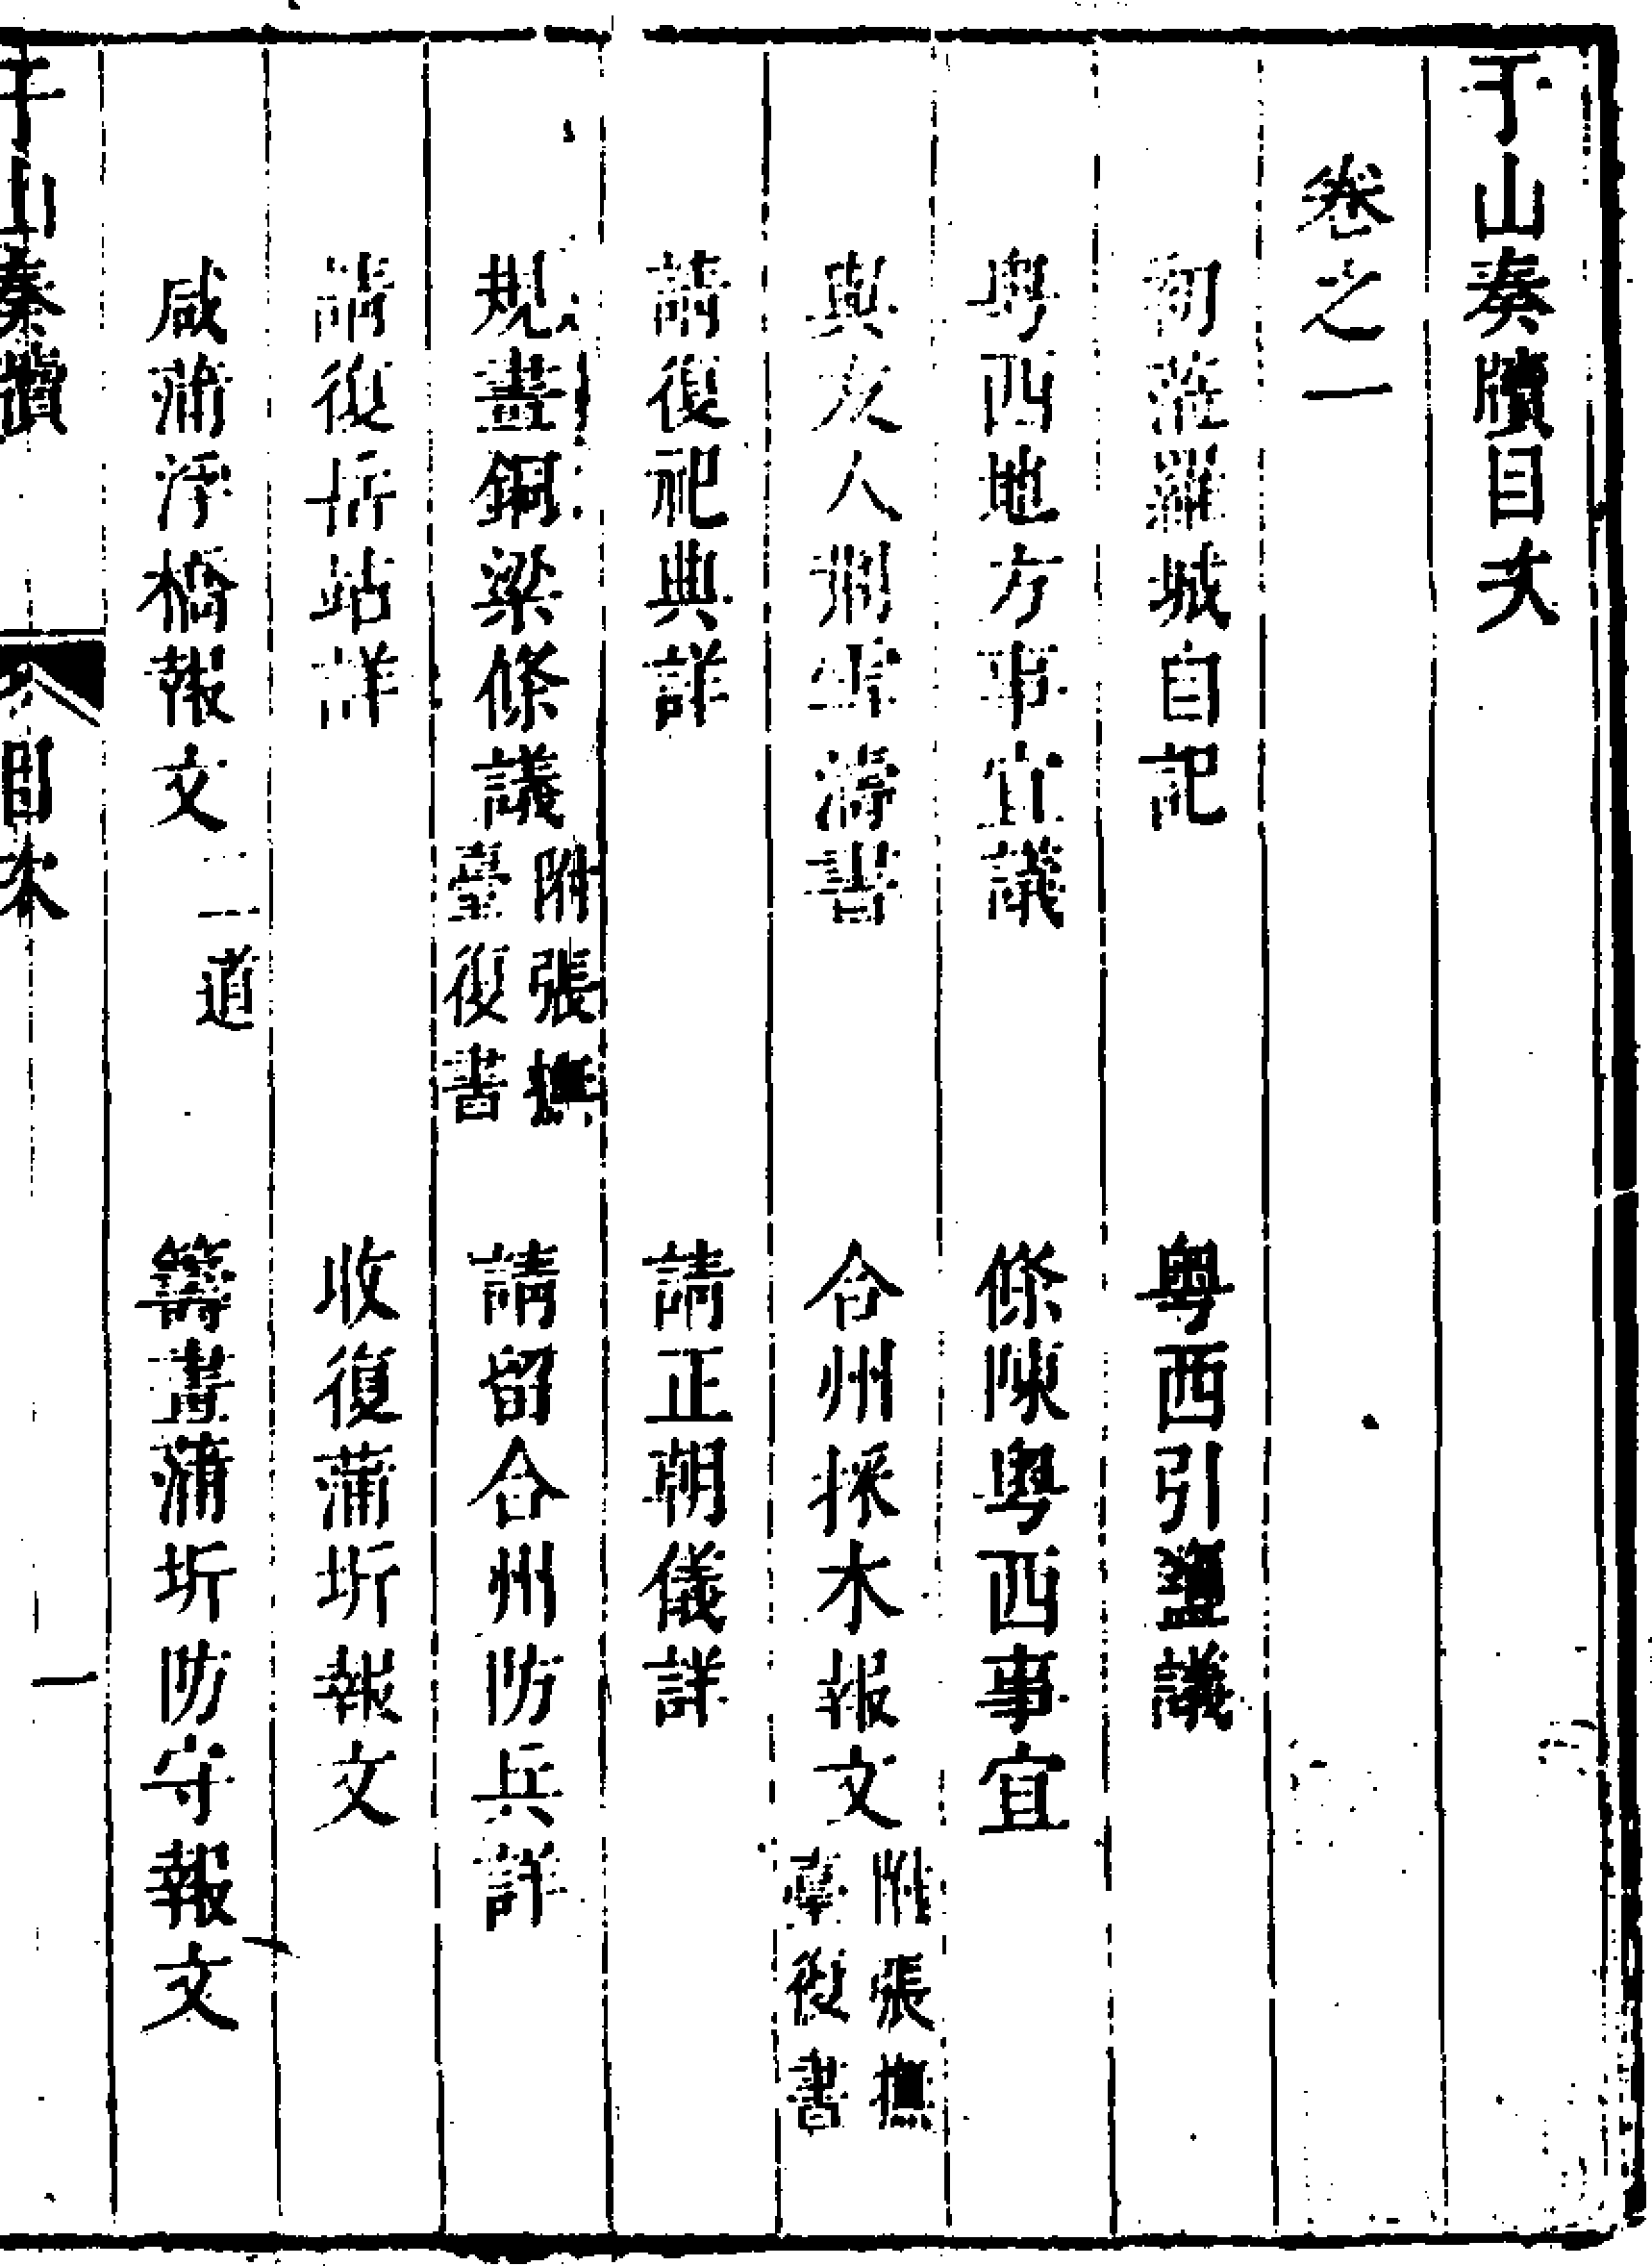 于山奏牘目次
卷之一
初蒞羅城自記　粤西引鹽議
粤西地方事宜議　條陳粤西事宜
與友人荆雪濤書　合州採木報文附張撫臺復書
請復祀典詳　請正朝儀詳
規畫銅梁條議附張撫臺復書　請留合州防兵詳
請復站詳　收復蒲圻報文
咸蒲浮橋報文二道　籌畫蒲圻防守報文
于山奏牘　目次　一